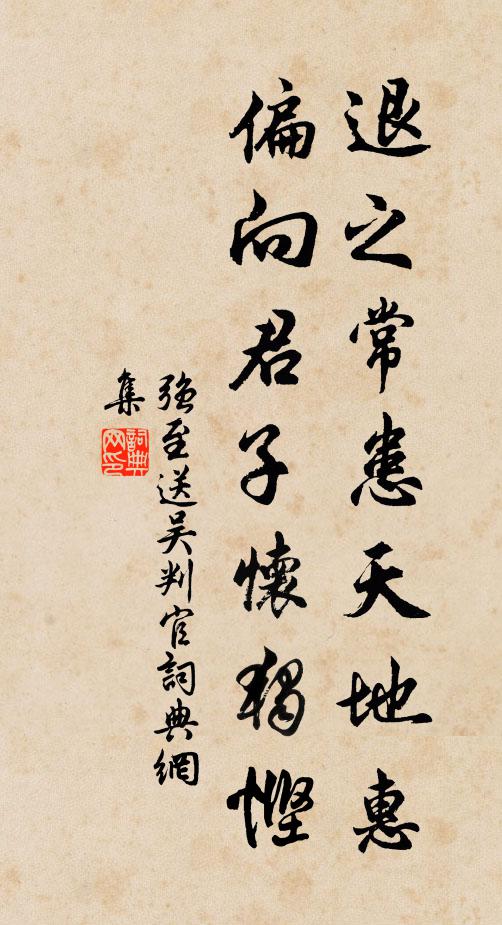 退之常患天地惠
偏向君子懷獨慳
強至送吴判官詞典網
集
詞典
网印